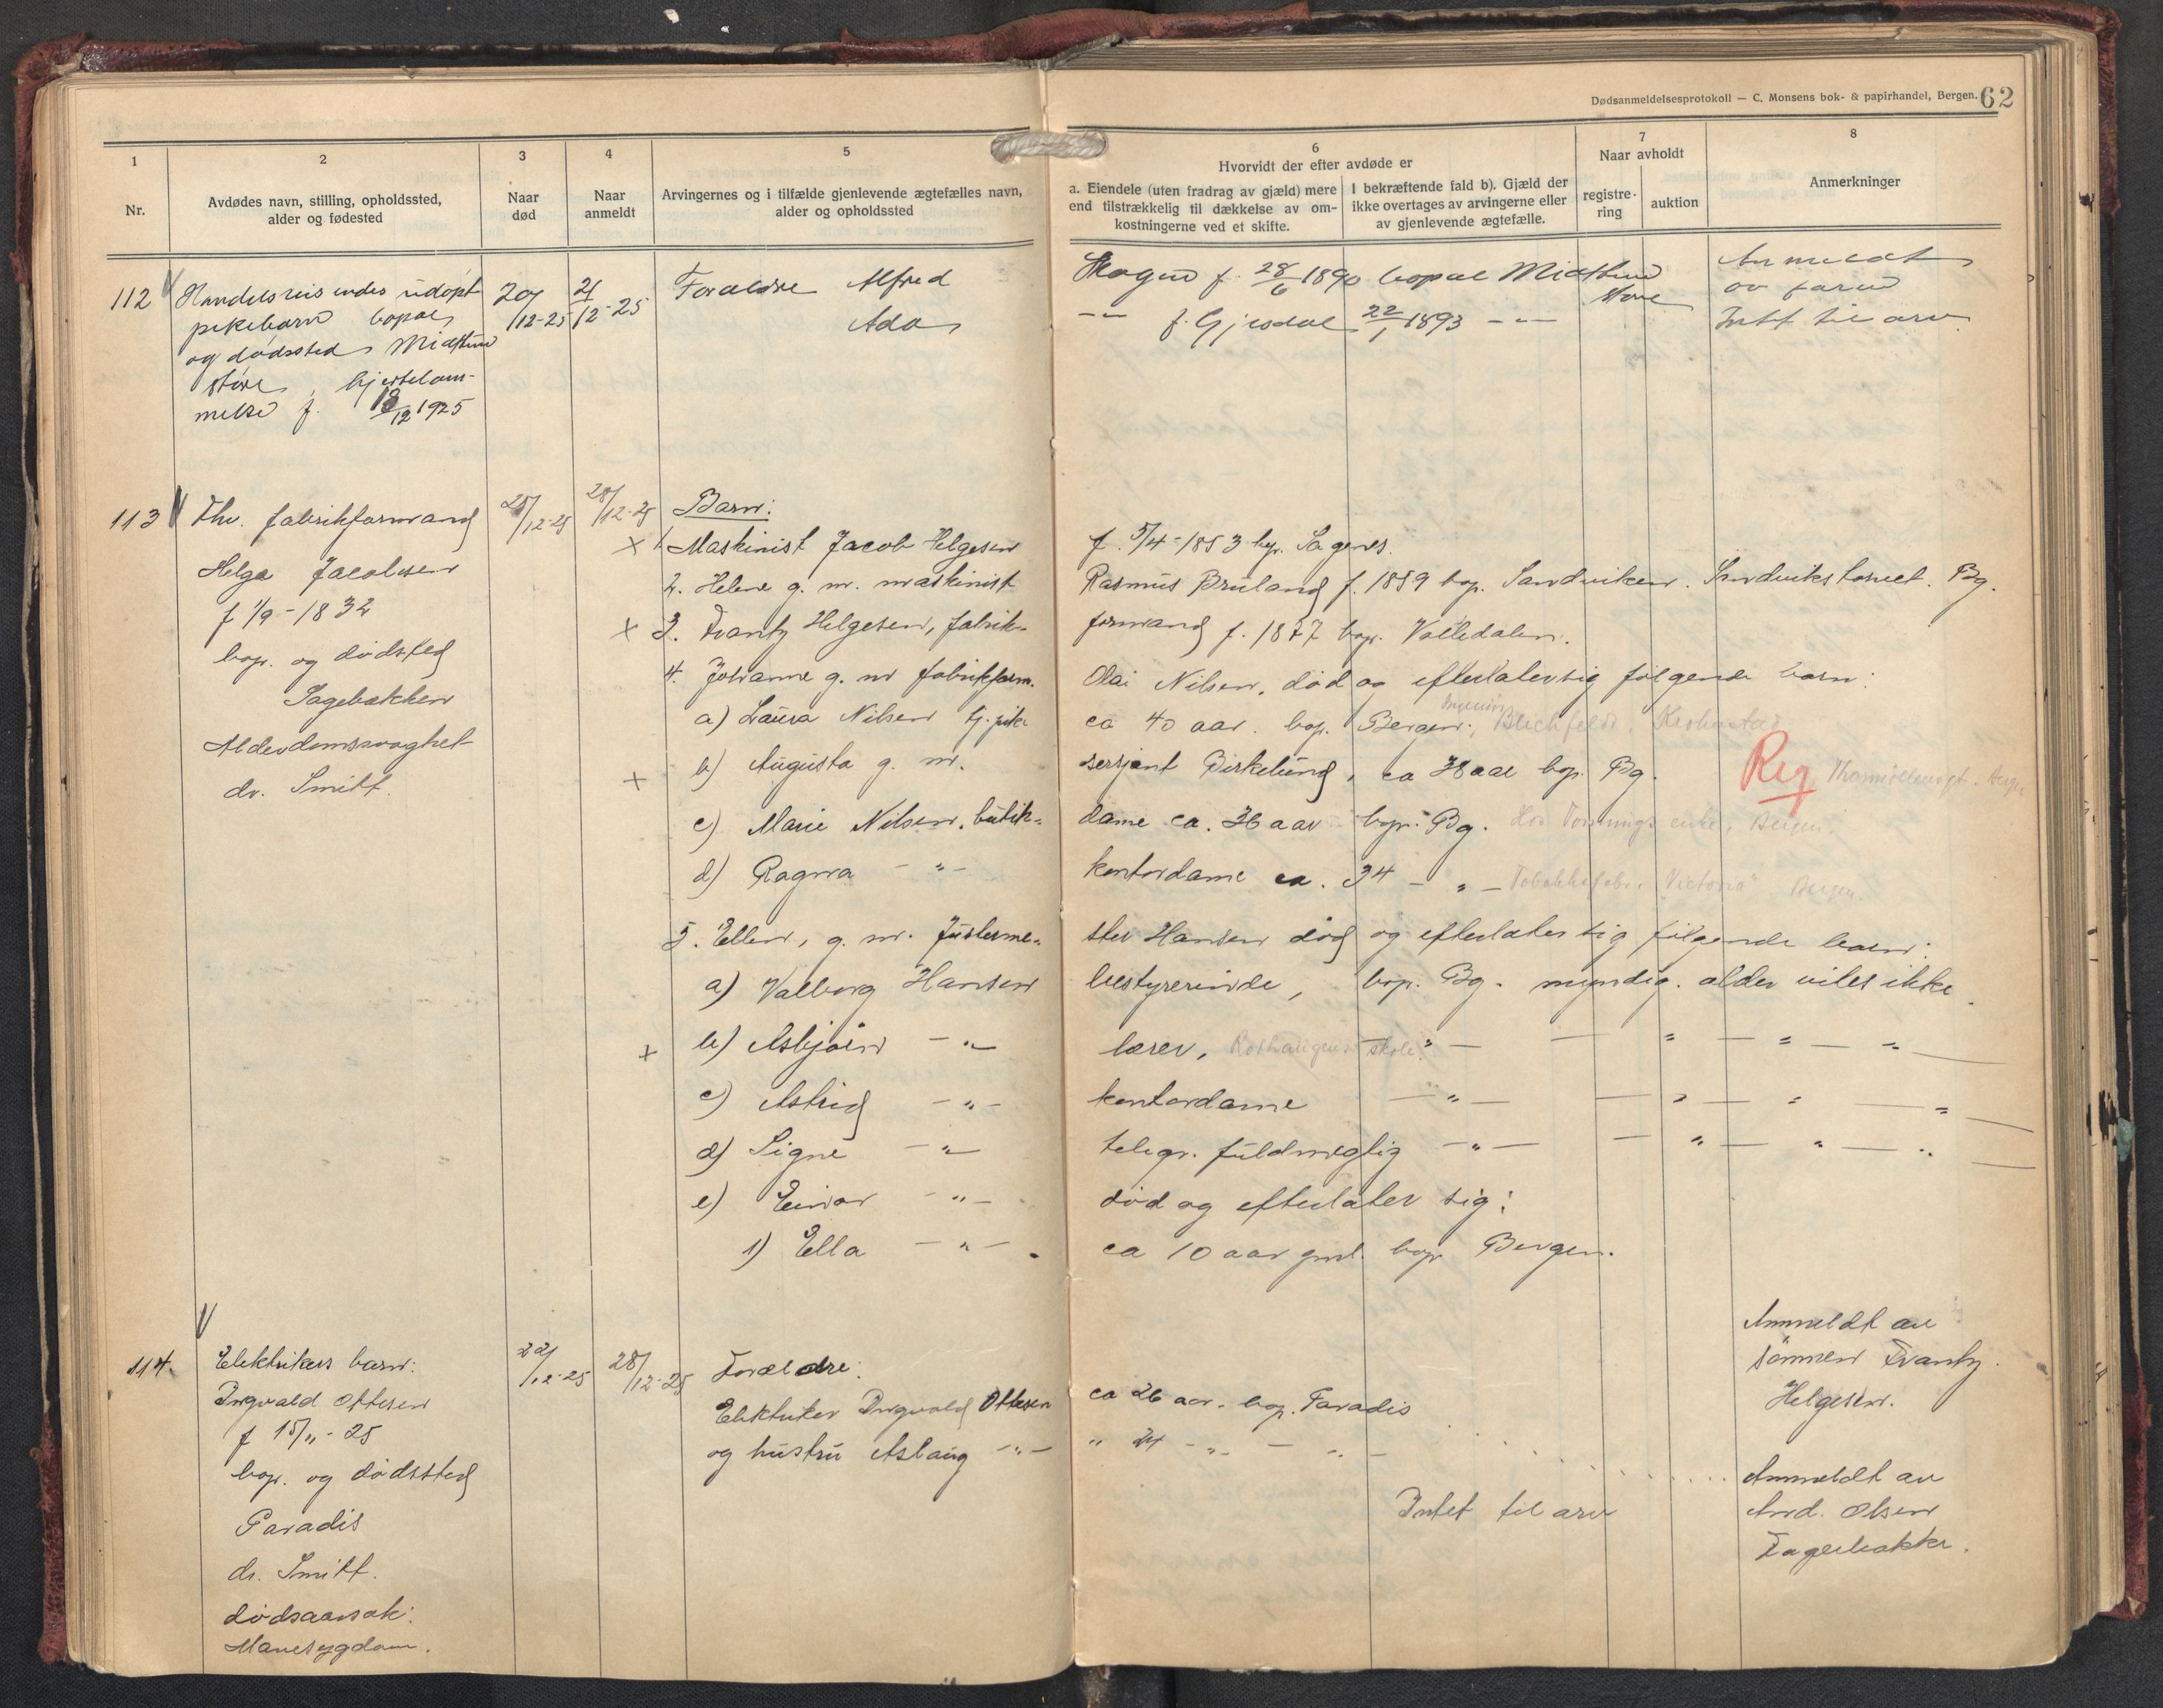 Dødsanmeldelsesprotokoll — C. Monsens bok- & papirhandel, Bergen. 62
1 2 3 4 5 6 7 8
Nr.
Avdødes navn, stilling, opholdssted,
alder og fødested
Naar
død
Naar
anmeldt
Arvingernes og i tilfælde gjenlevende ægtefælles navn,
alder og opholdssted
Hvorvidt der efter avdøde er
a. Eiendele (uten fradrag av gjæld) mere
end tilstrækkelig til dækkelse av om-
kostningerne ved et skifte.
I bekræftende fald b). Gjæld der
ikke overtages av arvingerne eller
av gjenlevende ægtefælle.
Naar avholdt
registre-
ring
auktion
Anmerkninger
112 Handelsreisendes udøpt
pikebarn bopæl
og dødssted Midttun
støre, hjertelam-
melse f. 18/12 1925
20/12-25 21/12-25
Forældre Alfred
Ada
Hagen f. 28/6 1890 bopæl Midttun
støre
-"- f. Gjesdal 22/1 1893 -"-
Anmeldt
av faren
Intet til arv
113 Fhv. fabrikformand
Helge Jacobsen
f 1/9-1832
bop. og dødsted
Sagebakken
Alderdomssvaghet
dr. Smitt.
25/12-25 28/12-25
Barn:
x 1. Maskinist Jacob Helgesen f. 5/4-1853 bop. Sagenes.
2. Helene g. m. maskinist Rasmus Bruland f. 1859 bop. Sandviken. Sandvikstorvet. Bg.
x 3. Frantz Helgesen, fabrik- formand f. 1877 bop. Valledalen.
4. Johanne g. m fabrikform. Olai Nilsen, død og efterlater sig følgende barn:
a) Laura Nilsen tj. pike ca 40 aar. bop. Bergen; Ingeniør Blichfeldt, Kronstad
x b) Augusta g. m. sersjant Birkelund, ca 38 aar bop. Bg. Reg
c) Marie Nilsen, butik- dame ca. 36 aar bop. Bg. Hos enke, Bergen.
d) Ragna -"- kontordame ca. 34 -"- Tobakksfabr. "Victoria" Bergen.
5. Ellen, g. m. Justerme- ster Hansen død og efterlater sig følgende barn:
a) Valborg Hansen bestyrerinde, bop. Bg. myndig. alder vites ikke.
x b) Asbjørn -"- lærer, Rothaugens skole. -"- — " — " — "
c) Astrid -"- kontordame -"- — " — " — "
d) Signe -"- telegr. fuldmegtig -"- — " — " — "
e) Einar -"- død og efterlater sig:
1) Ella -"- ca 10 aar gml. bop Bergen.
Anmeldt av
sønnen Frantz
Helgesen.
114. Elektrikers barn:
Ingvald Ottesen
f 15/11-25
bop. og dødssted
Paradis
dr. Smitt.
dødsaarsak:
Mavesygdom.
22/12-25 28/12-25
Forældre:
Elektriker Ingvald Ottesen ca 26 aar. bop. Paradis
og hustru Aslaug -"- " 24 -"- — -"-
Intet til arv
Anmeldt av
And. Olsen
Fagerbakke.